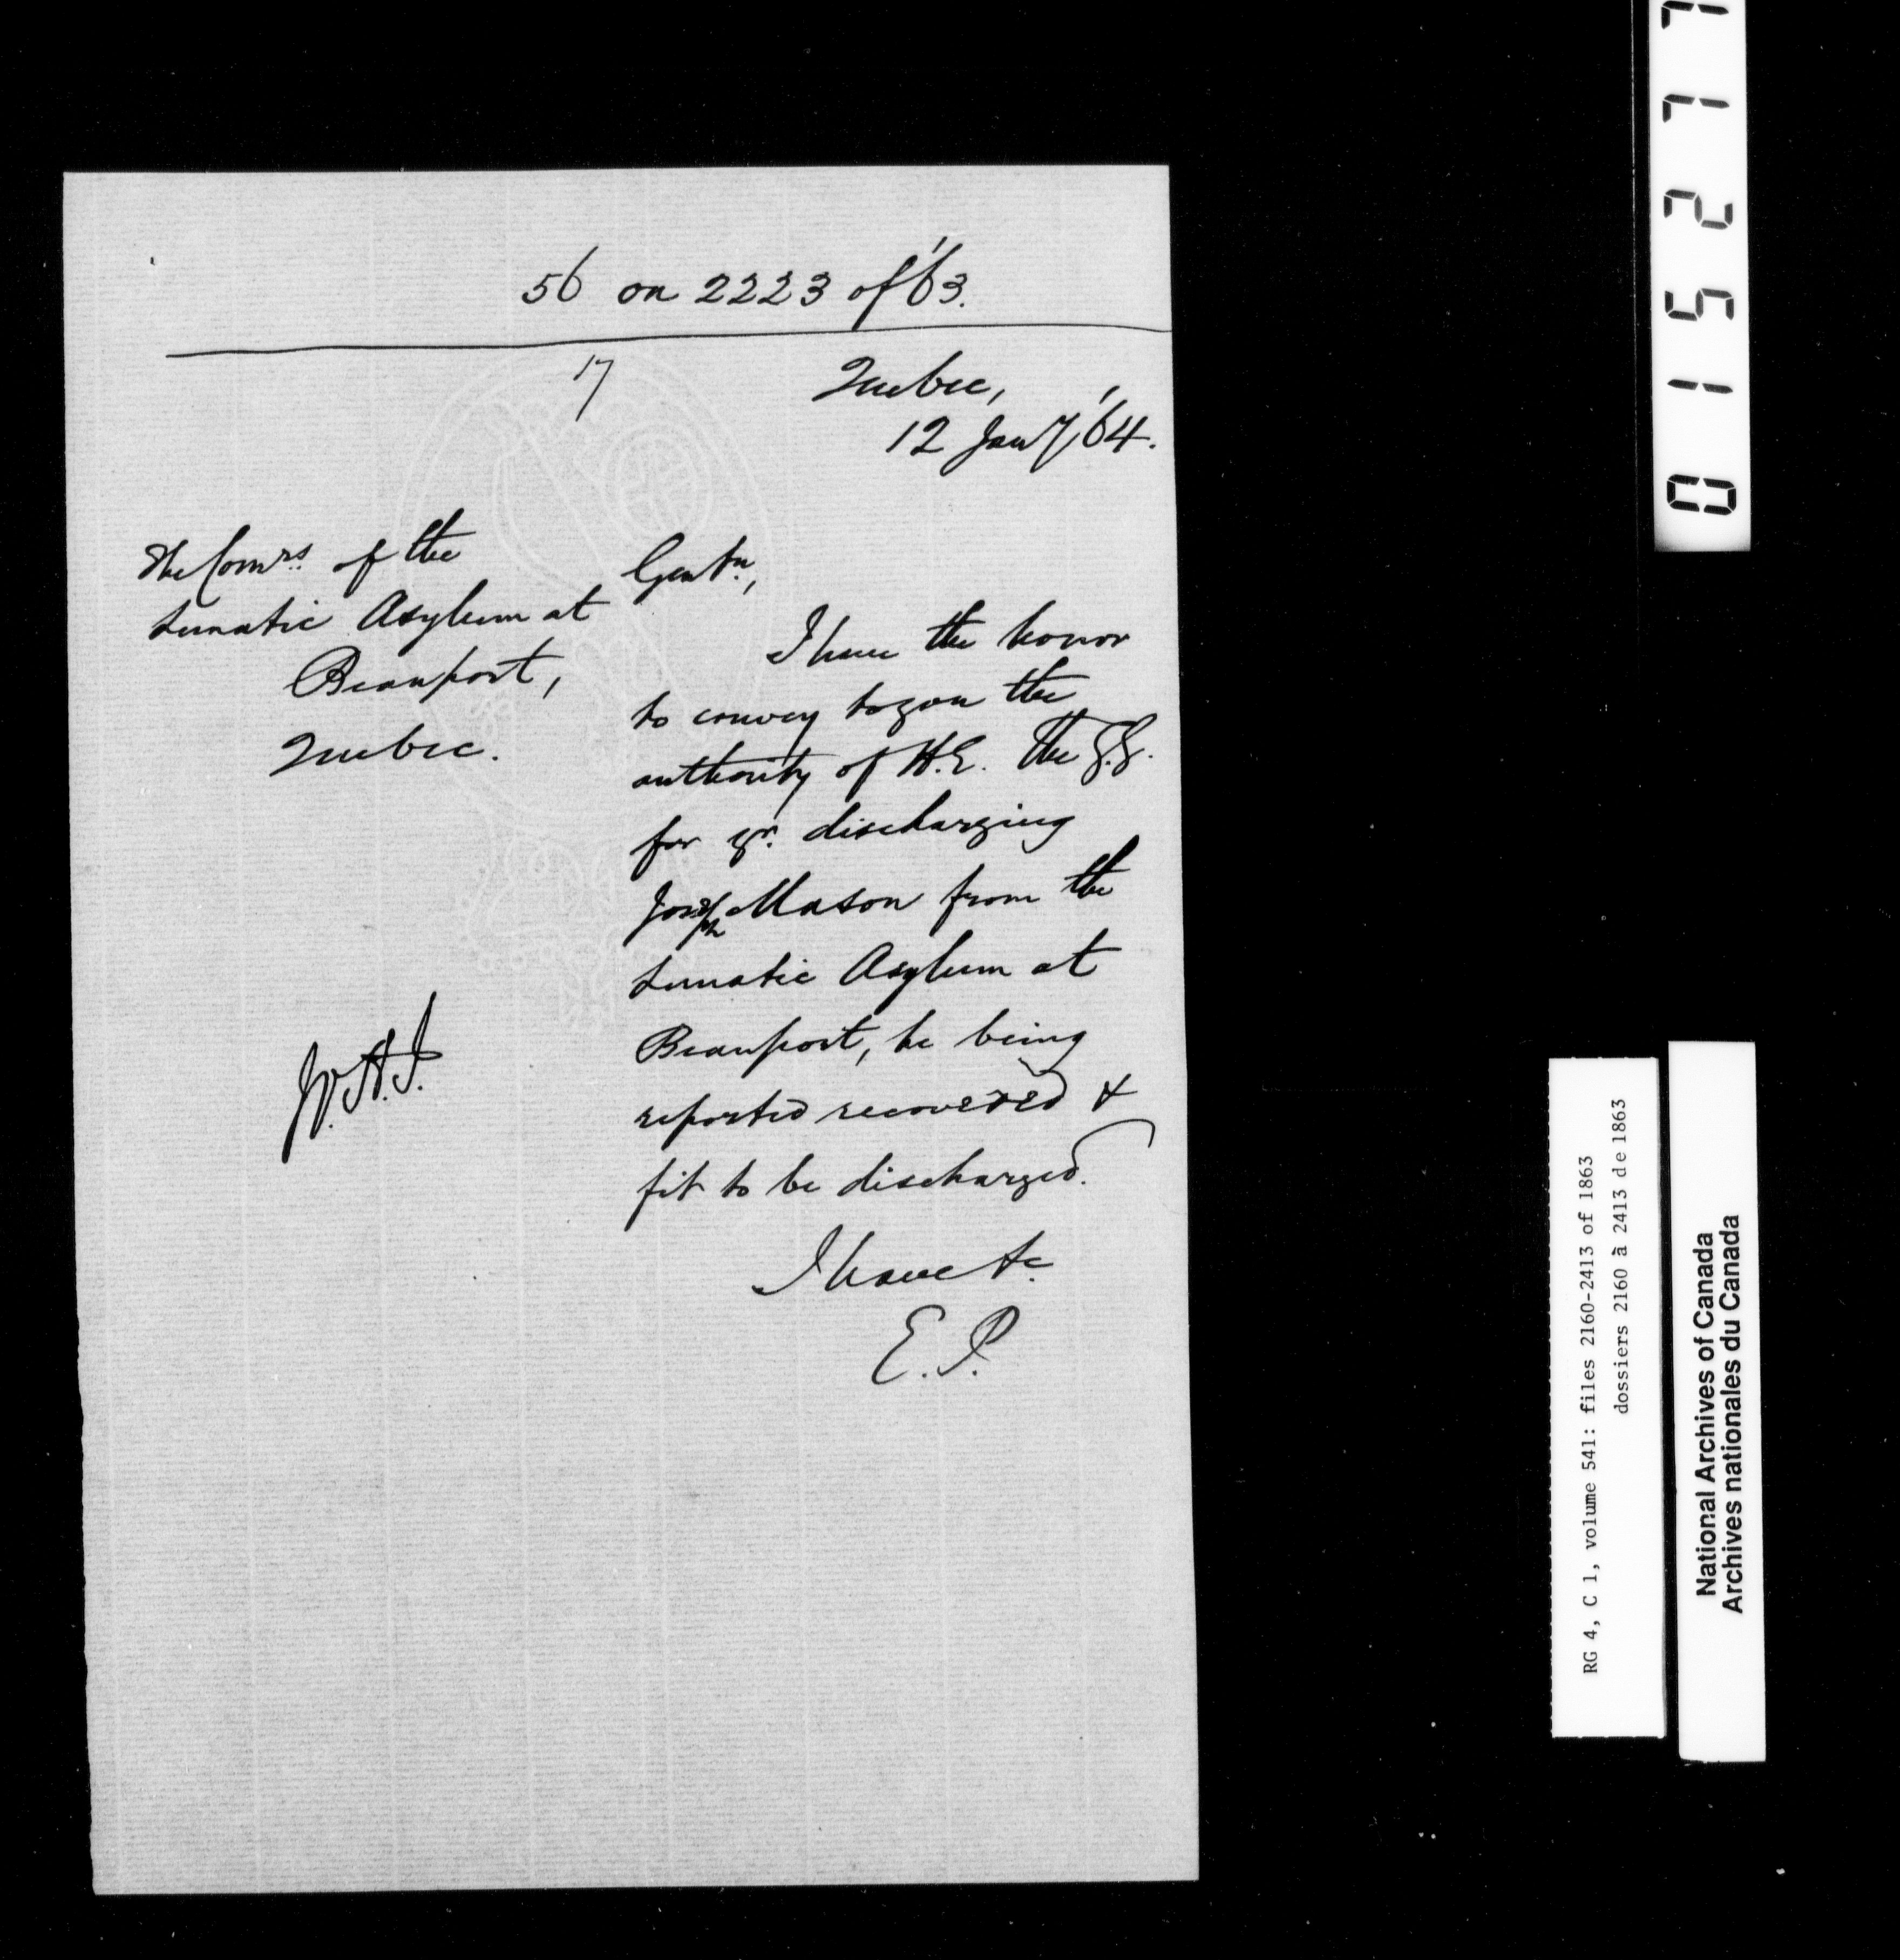 56 on 2223 of '63.
17
Quebec,
12 Jany '64.
The Comrs. of the
Lunatic Asylum at
Beauport,
Quebec.
Gentn.,
I have the honor
to convey to you the
authority of H.E. the G.G.
for yr. discharging
Joseph Mason from the
Lunatic Asylum at
Beauport, he being
reported recovered &
fit to be discharged.
I have &c.
E.P.
015277
RG 4, C 1, volume 541: files 2160-2413 of 1863
dossiers 2160 à 2413 de 1863
National Archives of Canada
Archives nationales du Canada